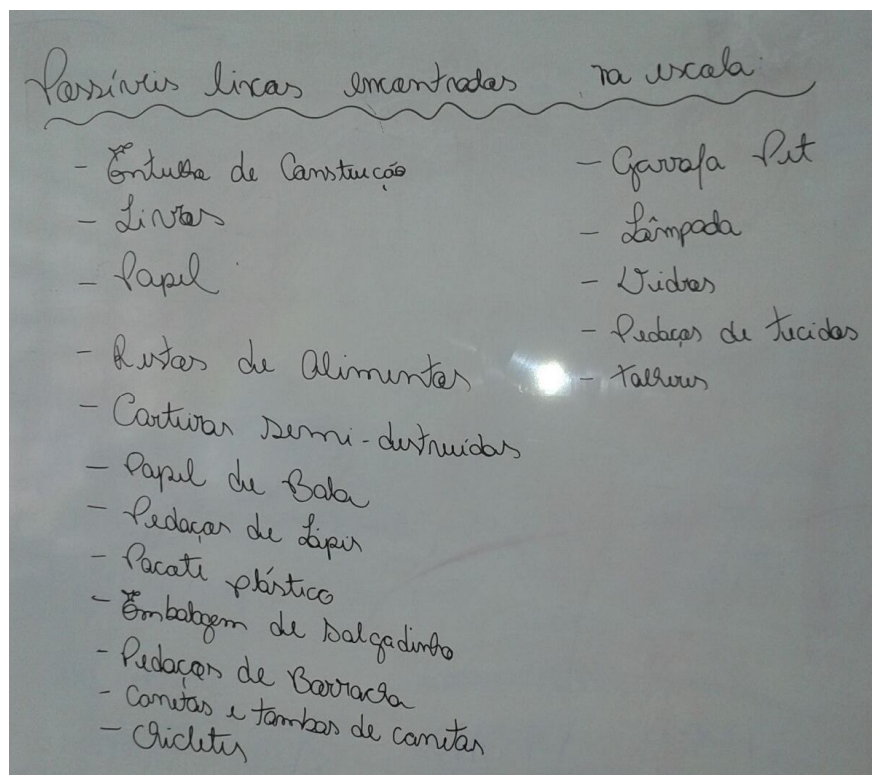 Possíveis lixos encontrados na escola
- Entulho de Construção
- Livros
- Papel
- Restos de alimentos
- Carteiras semi-destruídas
- Papel de Bala
- Pedaços de Lápis
- Pacote plástico
- Embalagem de salgadinho
- Pedaços de Borracha
- Canetas e tambas de canetas
- Chicletes
- Garrafa Pet
- Lâmpada
- Vidros
- Pedaços de tecidos
- talheres